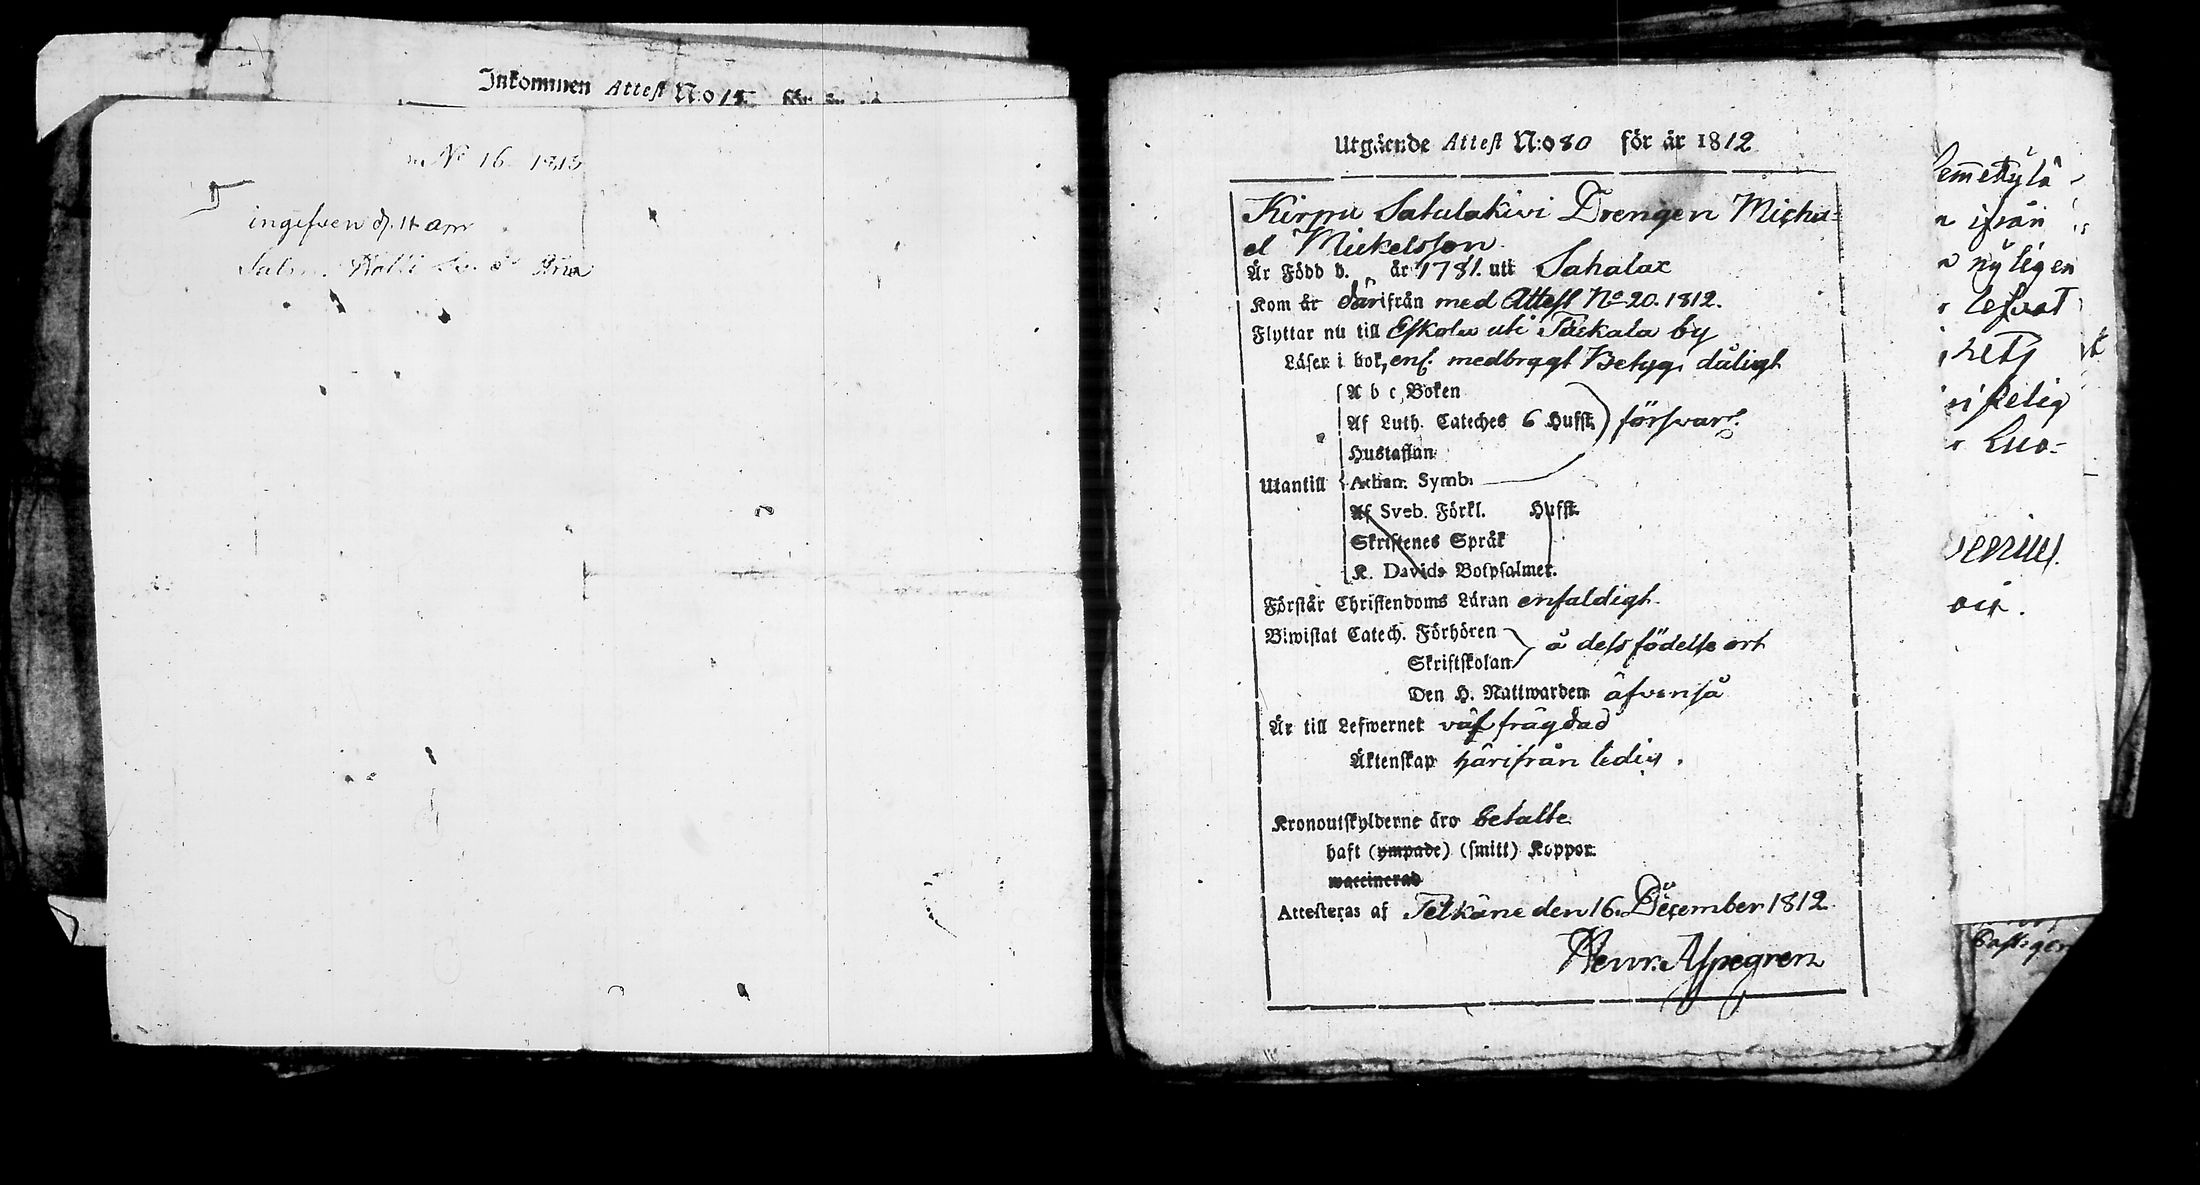 Inkommen Attest N:o 15
No 16 1813
ingifven d.
Utgående Attest N:o 80 för år 1812
Kirpu Satulakivi Drengen Micha=
el Mickelsson.
Är Född d. „ år 1781. uti Sahalax
Kom år därifrån med Attest No 20. 1812.
Flyttar nu till Eskola uti Täckala by
Läser i bok, enl. medbragt Betyg, dåligt
A b c, Boken
Af Luth. Cateches 6 Hufst. försvarl.
Hustaflan
Utantill Athan. Symb.
Af Sveb. Förkl. Hufst.
Skriftenes Språk
K. Davids Botpsalmer.
Förstår Christendoms Läran enfaldigt.
Biwistat Catech. Förhören
Skriftskolan å dess födelse ort
Den H. Nattwarden äfvenså
Är till Lefwernet väl frägdad
Äktenskap härifrån ledig.
Kronoutskylderne äro betalte
haft (ympade) (smitt) Koppor.
waccinerad
Attesteras af Pelkäne den 16. December 1812.
Henr. Aspegren
ifrån
nyligen